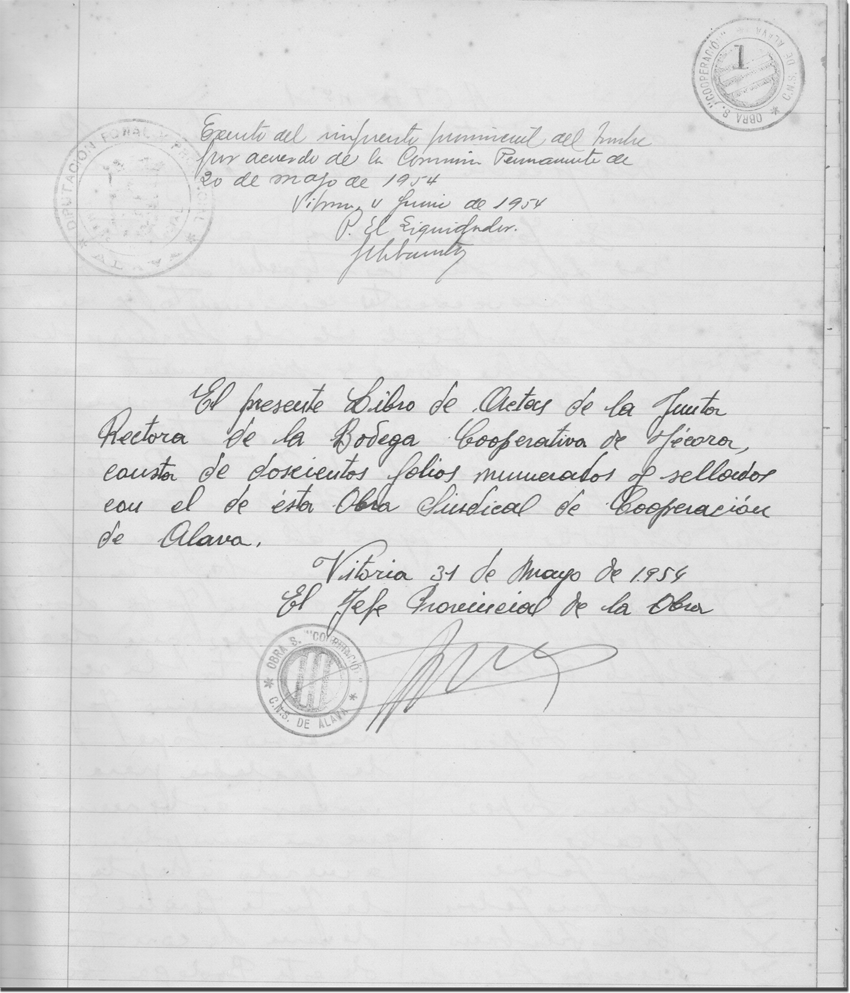 OBRA S. "COOPERACIÓN"
C.N.S. DE ALAVA
1
DIPUTACION FORAL Y PROVINCIAL
* ALAVA *
Exento del impuesto provincial del Timbre
por acuerdo de la Comisión Permanente de
20 de mayo de 1954
Vitoria, 4 Junio de 1954
P. El Liquidador.
El presente Libro de Actas de la Junta
Rectora de la Bodega Cooperativa de Yécora,
consta de doscientos folios numerados y sellados
con el de ésta Obra Sindical de Cooperación
de Alava.
Vitoria 31 de Mayo de 1954
El Jefe Provincial de la Obra
* OBRA S. "COOPERACIÓN" *
C.N.S. DE ALAVA